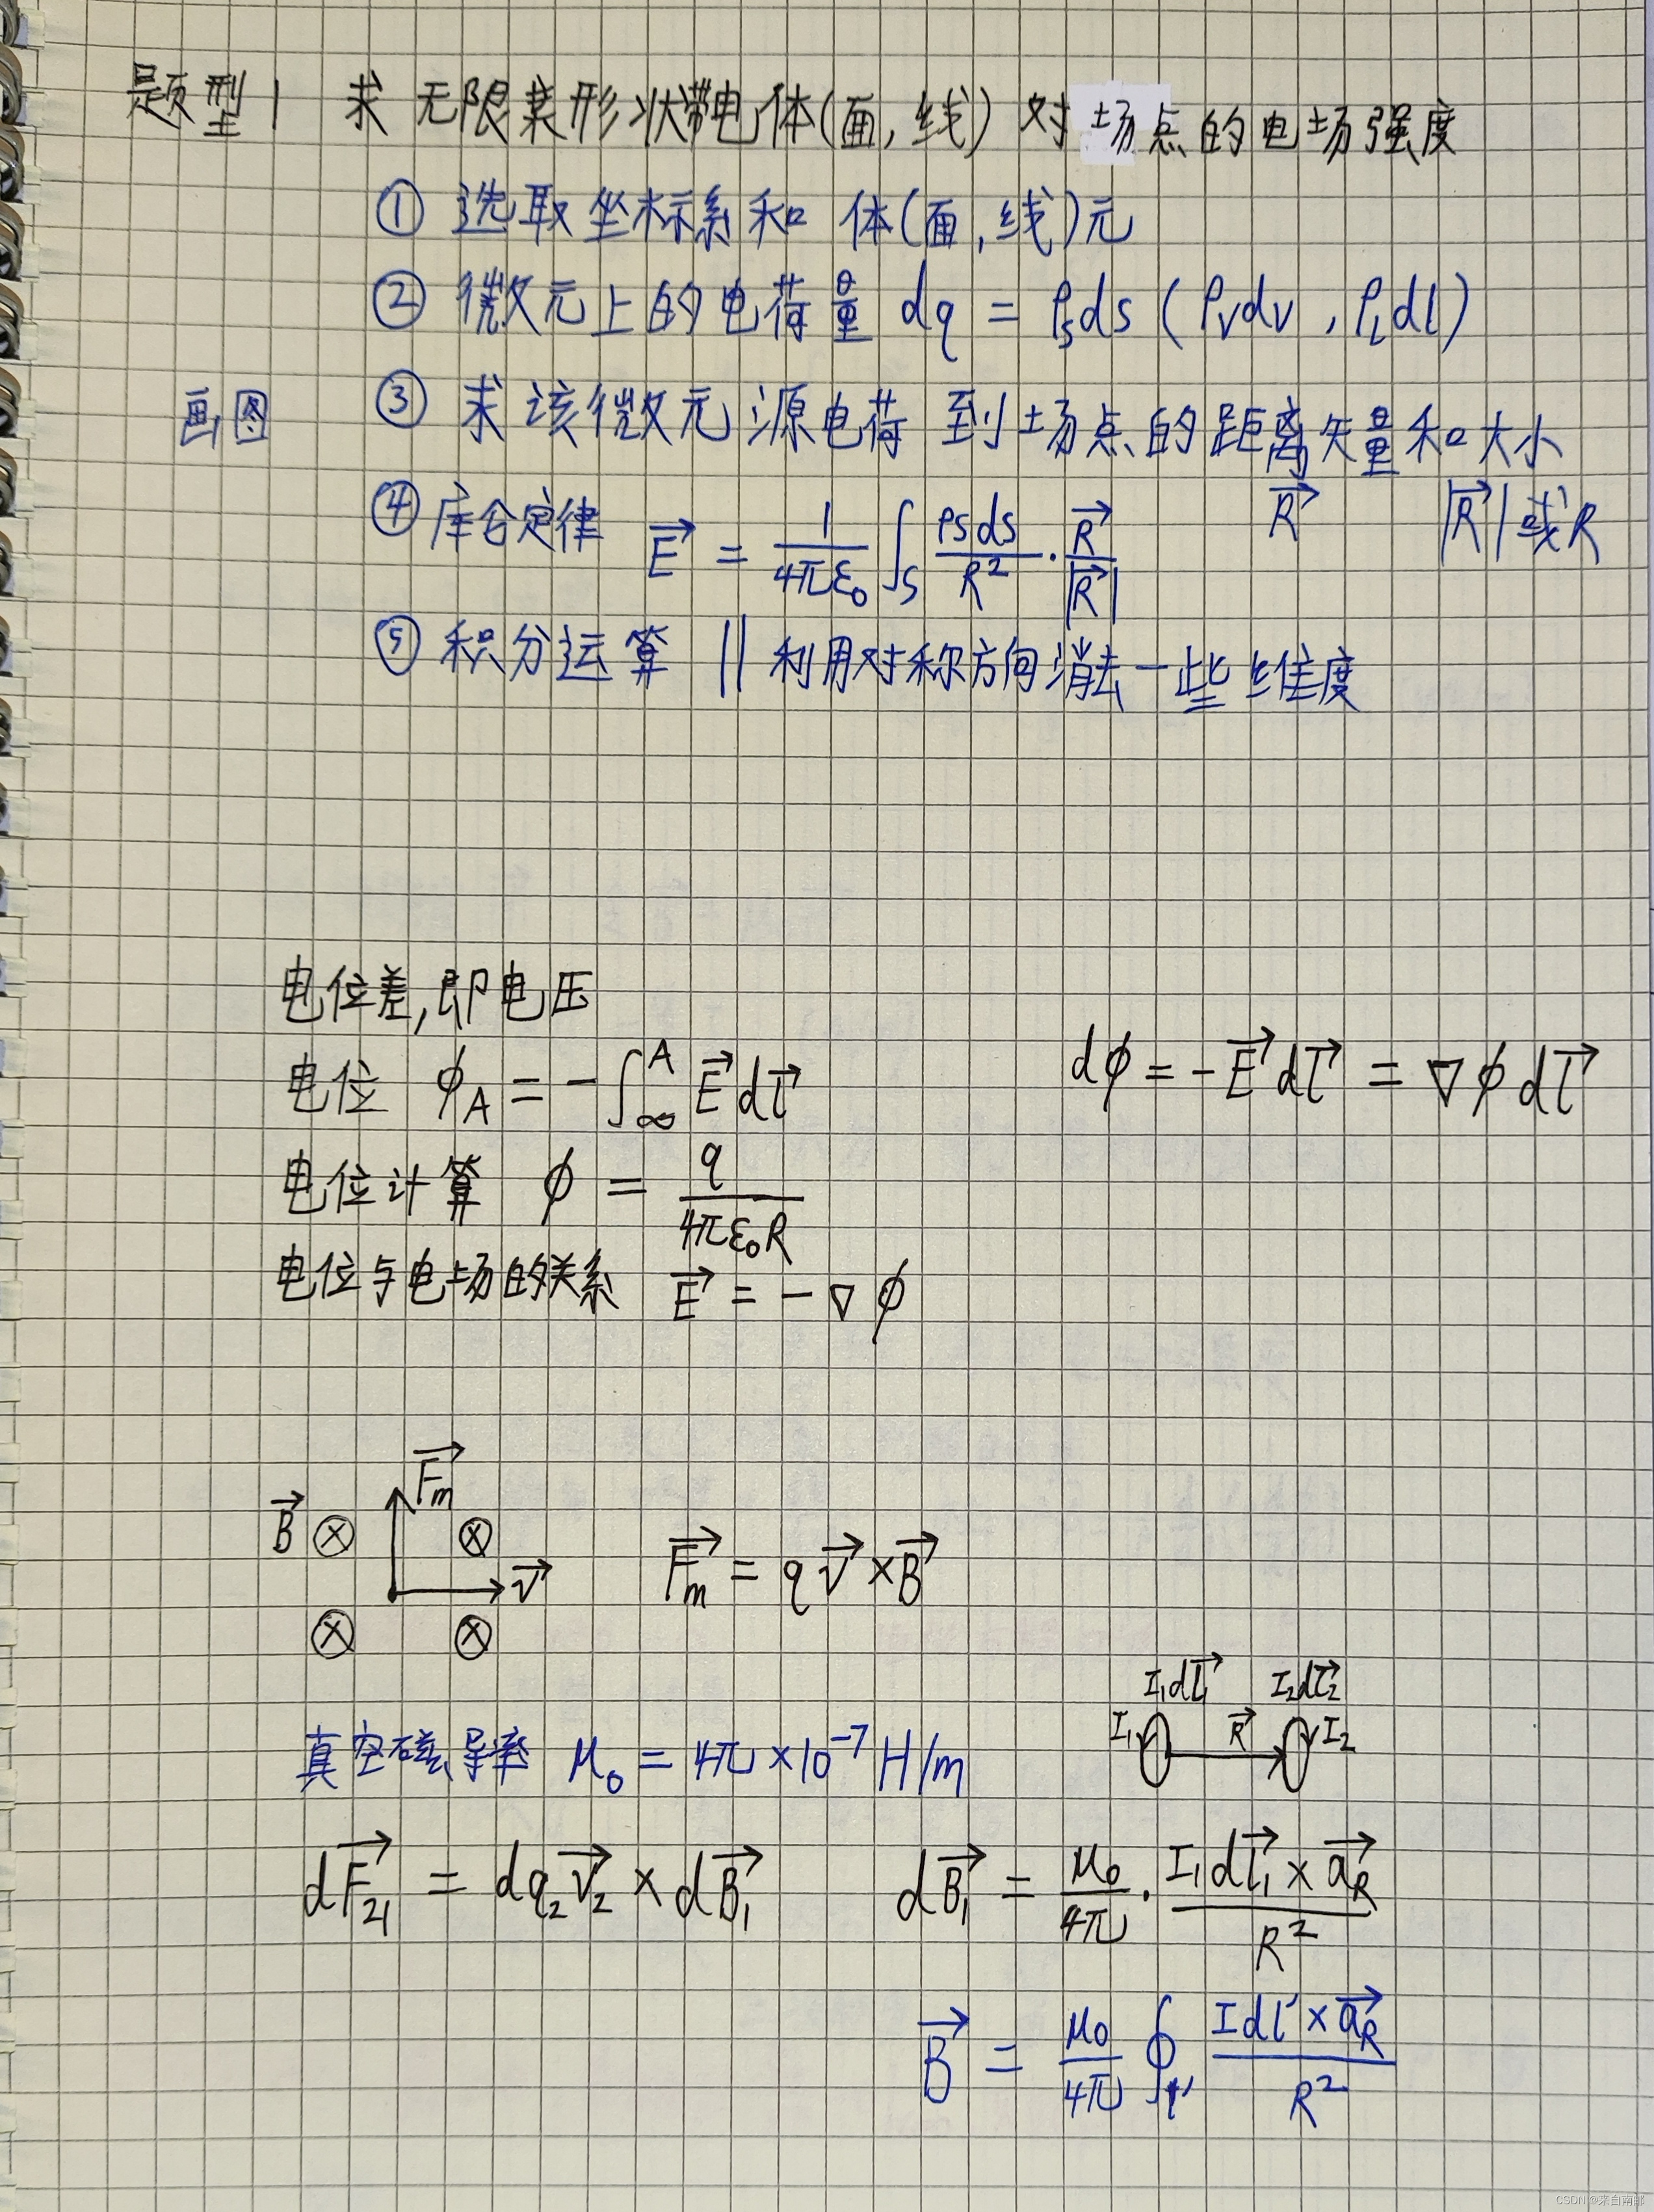 题型1 求无限某形状带电体(面,线)对场点的电场强度
① 选取坐标系和 体(面,线)元
② 微元上的电荷量 dq = ρ_s ds (ρ_v dv , ρ_l dl)
画图 ③ 求该微元源电荷到场点的距离矢量和大小
R⃗ |R⃗|或R
④ 库仑定律 E⃗ = 1/(4πε₀) ∫_S (ρs ds)/R² · R⃗/|R⃗|
⑤ 积分运算 || 利用对称方向消去一些维度
电位差,即电压
电位 ϕ_A = -∫_∞^A E⃗ dl⃗ dϕ = -E⃗ dl⃗ = ∇ϕ dl⃗
电位计算 ϕ = q/(4πε₀R)
电位与电场的关系 E⃗ = -∇ϕ
F⃗m
B⃗ ⊗ ⊗
v⃗
⊗ ⊗
F⃗m = q v⃗ × B⃗
I₁dl⃗₁ I₂dl⃗₂
I₁ R⃗ I₂
真空磁导率 μ₀ = 4π×10⁻⁷ H/m
dF⃗₂₁ = dq₂ v⃗₂ × dB⃗₁ dB⃗₁ = μ₀/(4π) · (I₁dl⃗₁ × a⃗_R)/R²
B⃗ = μ₀/(4π) ∮_l' (Idl' × a⃗_R)/R²
CSDN @来自南邮